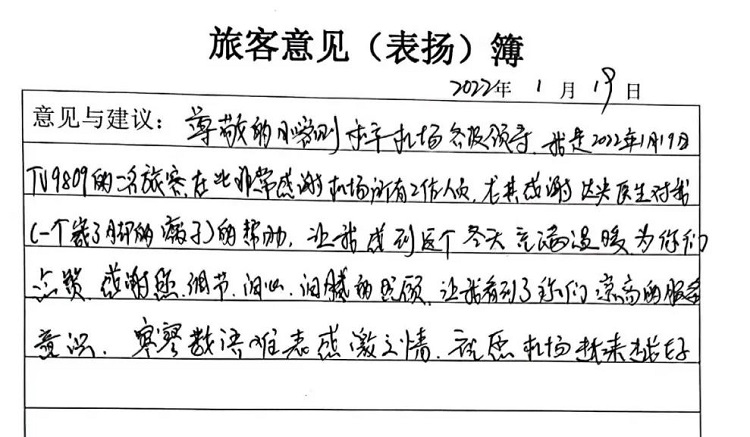 旅客意见（表扬）簿
2022年 1 月 19 日
意见与建议：尊敬的日喀则和平机场各级领导，我是2022年1月19日
TV9809的一名旅客在此非常感谢机场所有工作人员，尤其感谢达央医生对我
(一个的孩子)的帮助，让我感到这个冬天充满温暖，为你们
点赞，感谢您，细节、细心、细腻的照顾，让我看到了你们崇高的服务
意识，寥寥数语难表感激之情，祝愿机场越来越好